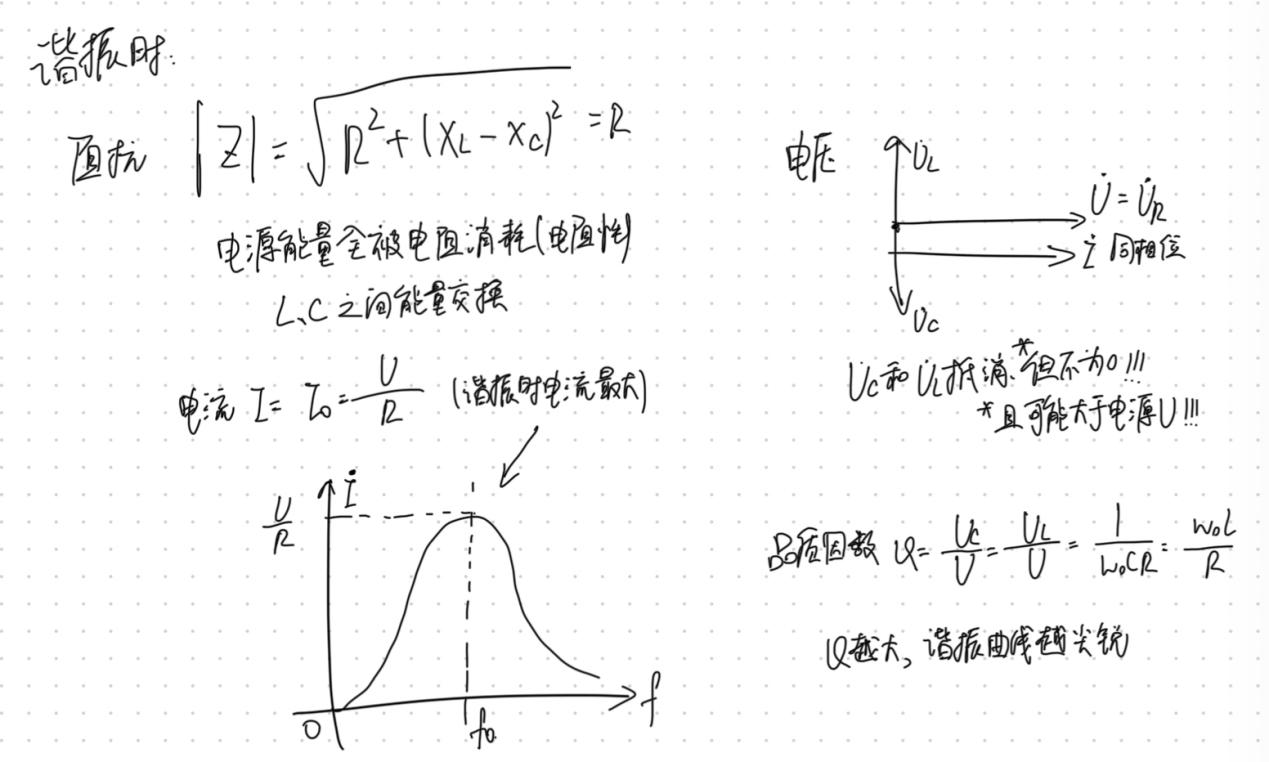 谐振时:
阻抗 |Z| = √R²+(X_L-X_C)² = R
电源能量全被电阻消耗(电阻性)
L、C之间能量交换
电流 I = I₀ = U/R (谐振时电流最大)
U/R
İ
0
f₀
f
电压
U̇_L
U̇ = U̇_R
İ 同相位
U̇_C
U̇_C和U̇_L抵消、*但不为0!!!
*且可能大于电源U!!!
品质因数 Q = U_C/U = U_L/U = 1/ω₀CR = ω₀L/R
Q越大,谐振曲线越尖锐